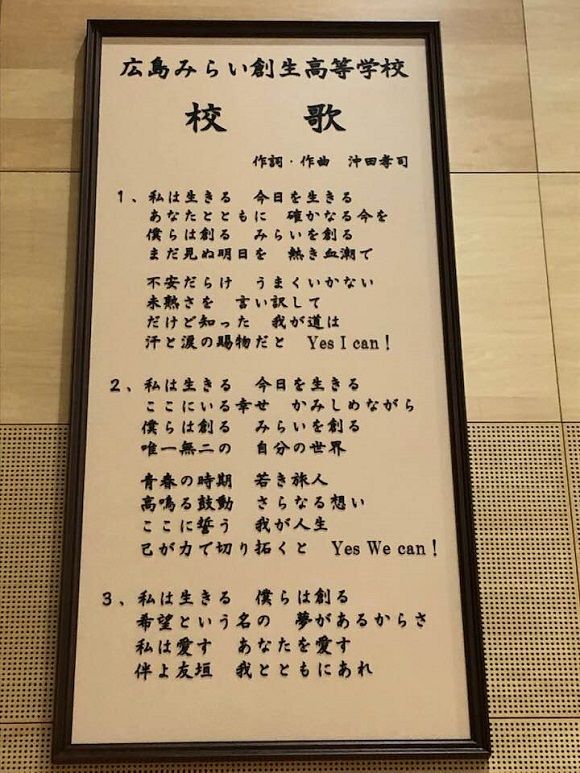 広島みらい創生高等学校
校　歌
作詞・作曲　沖田孝司
1、私は生きる　今日を生きる
あなたとともに　確かなる今を
僕らは創る　みらいを創る
まだ見ぬ明日を　熱き血潮で
不安だらけ　うまくいかない
未熟さを　言い訳して
だけど知った　我が道は
汗と涙の賜物だと　Yes I can！
2、私は生きる　今日を生きる
ここにいる幸せ　かみしめながら
僕らは創る　みらいを創る
唯一無二の　自分の世界
青春の時期　若き旅人
高鳴る鼓動　さらなる想い
ここに誓う　我が人生
己が力で切り拓くと　Yes We can！
3、私は生きる　僕らは創る
希望という名の　夢があるからさ
私は愛す　あなたを愛す
伴よ友垣　我とともにあれ